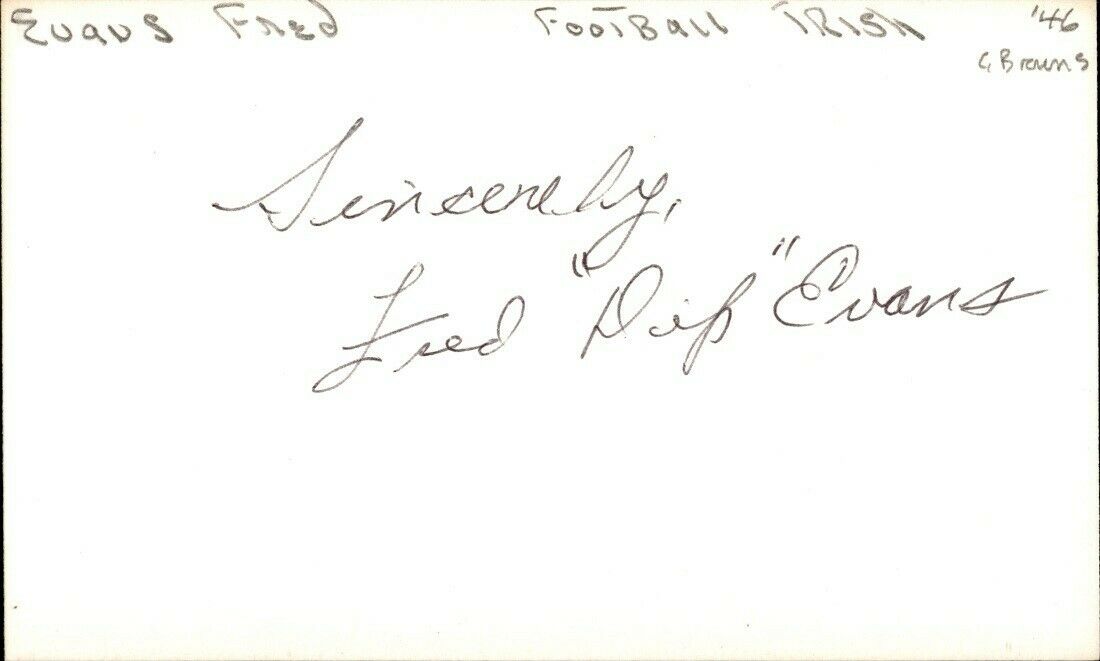 Evans Fred Football Irish '46
C Browns
Sincerely,
Fred "Dip" Evans